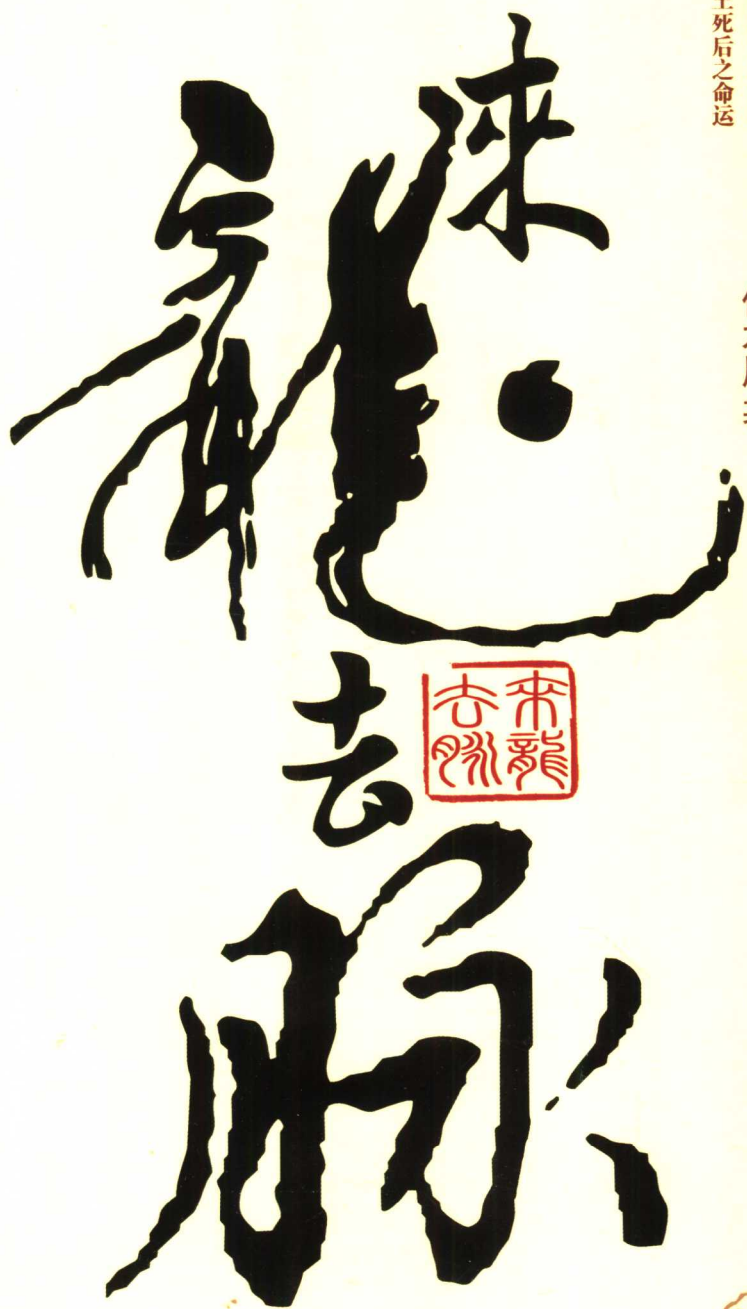 死后之命运
来
龍
去
脉
来龍
去脉